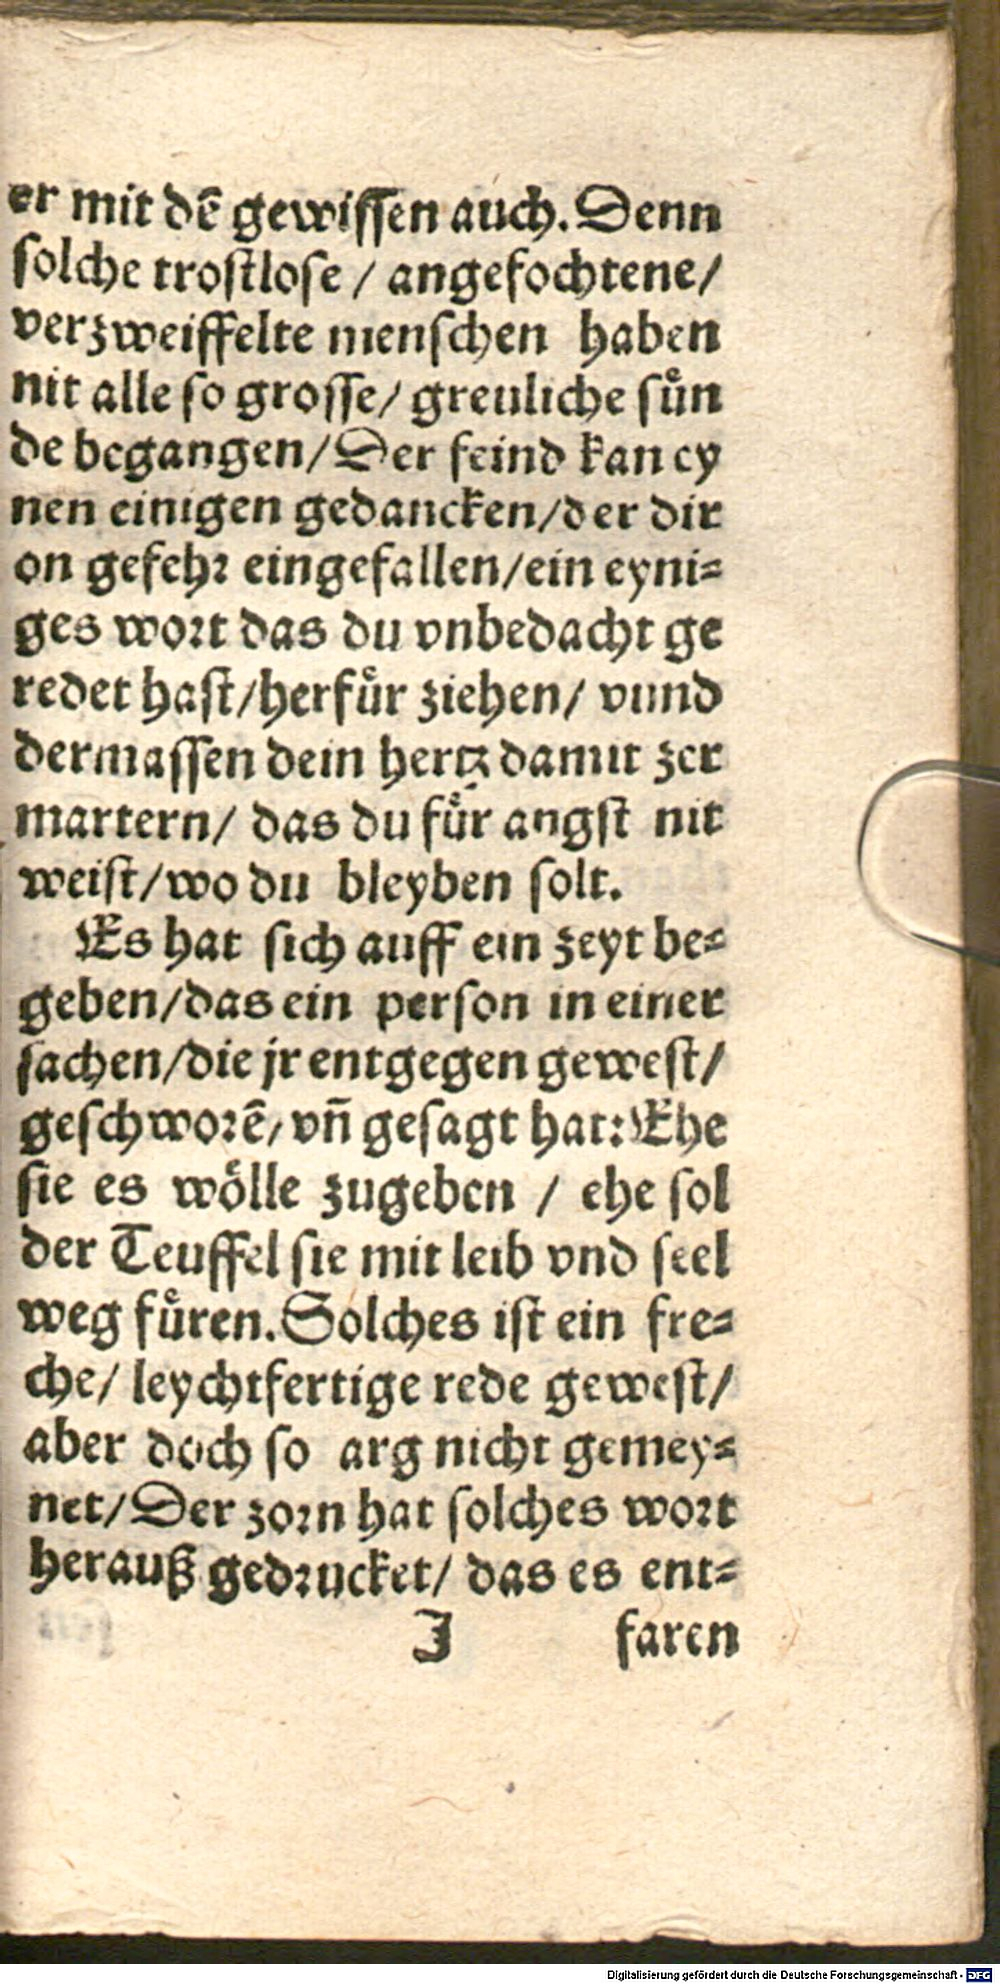 er mit dẽ gewiſſen auch. Denn
ſolche troſtloſe / angefochtene/
verzweiffelte menſchen haben
nit alle ſo groſſe/ greuliche ſuͤn
de begangen/ Der feind kan ey
nen einigen gedancken/der dir
on gefehꝛ eingefallen/ein eyni⸗
ges woꝛt das du vnbedacht ge
redet haſt/herfuͤr ziehen/ vnnd
dermaſſen dein hertz damit zer
martern/ das du fuͤr angſt nit
weiſt/wo du bleyben ſolt.
Es hat ſich auff ein zeyt be⸗
geben/das ein perſon in einer
ſachen/die jr entgegen geweſt/
geſchwoꝛẽ/ vñ geſagt hat: Ehe
ſie es woͤlle zugeben / ehe ſol
der Teuffel ſie mit leib vnd ſeel
weg fuͤren. Solches iſt ein fre⸗
che/ leychtfertige rede geweſt/
aber doch ſo arg nicht gemey⸗
net/ Der zoꝛn hat ſolches woꝛt
herauß gedꝛucket/ das es ent⸗
J faren
Digitalisierung gefördert durch die Deutsche Forschungsgemeinschaft - DFG